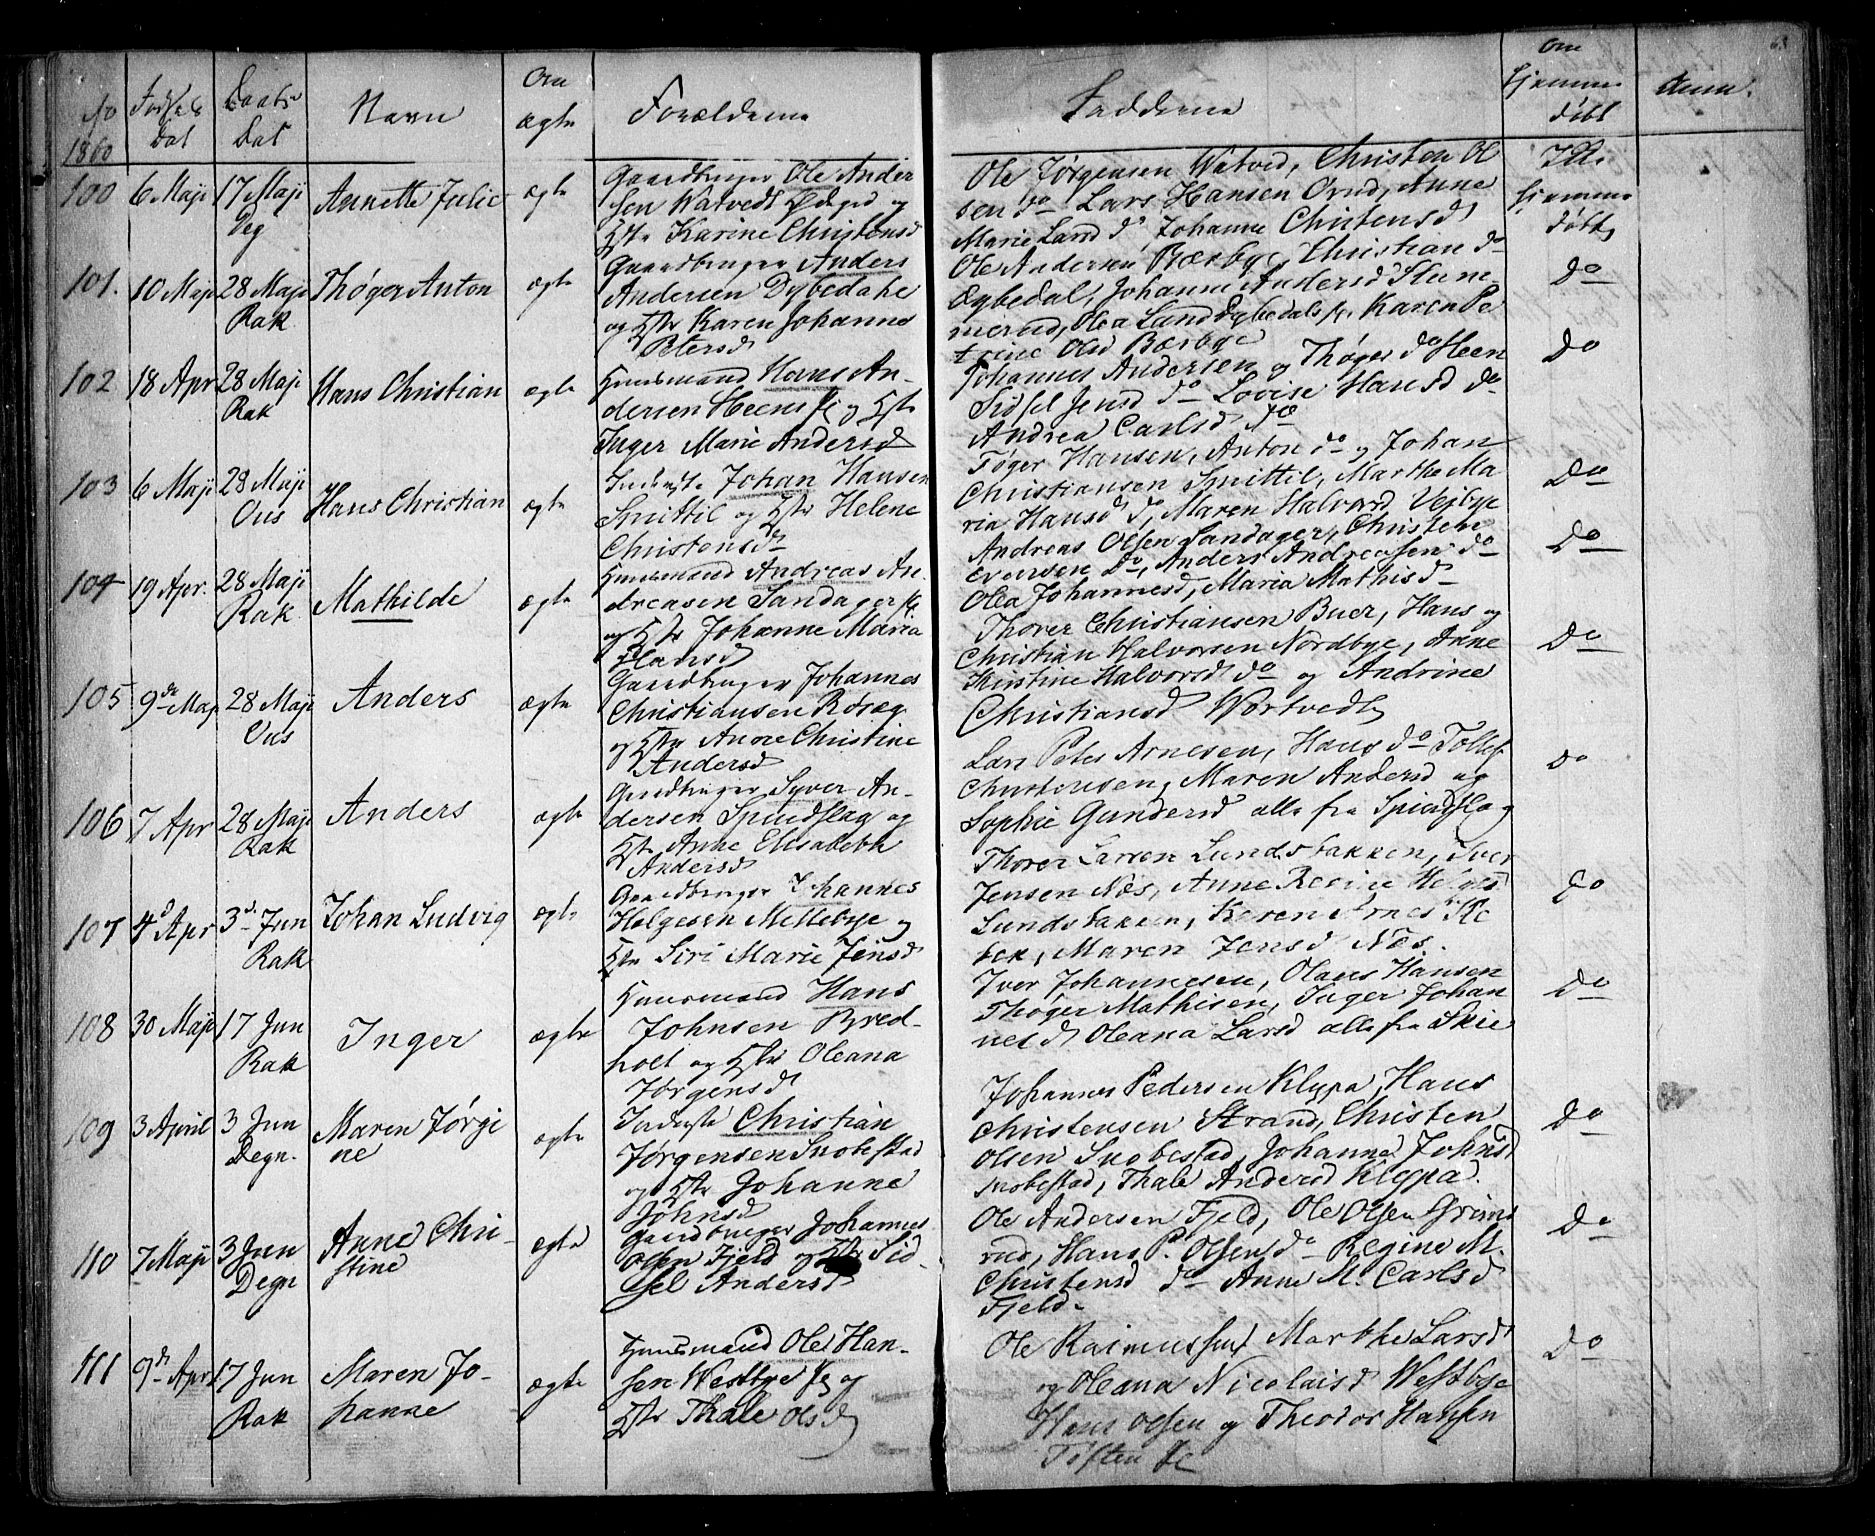 63
No 1860 Fødsels Dat Daabs Dat Navn Om ægte Forældrene Fadderne Om hjemme døbt Anm.
100 6 Maji 17 Maji Annette Julie ægte Gaardbruger Ole Ander
sen Watvedt Ødegrd og
Hstr Karine Christensd
Ole Jørgensen Watved, Christen Ol
sen do Lars Hansen Ørud, Anne
Marie Land d, Johanne Christensd
hjemme
døbt
101. 10 Maji 28 Maji Rak Thøger Anton ægte Gaardbruger Anders
Andersen Dybedahl
og Hstr Karen Johanne
Petersd
Ole Andersen Bærbye, Christian do
Dybedal, Johanne Andersd Stune
merud, Olea Lund Dybedals Karen Pe
trine Olsd Bærbye
Do
102 18 Apr 28 Maji Rak Hans Christian ægte Huusmand Hans An-
dersen Heens og Hstr
Inger Marie Andersd
Johannes Andersen og Thøger do Heen
Sidsel Jensd do Lovise Hansd do
Andrea Carlsd do
Do
103 6 Maji 28 Maji Ous Hans Christian ægte Inderste Johan Hansen
Smittil og Hstr Helene
Christensd
Tøger Hansen, Anton do og Johan
Christiansen Smittil, Marthe Ma
ria Hansd do, Maren Halvorsd Vejbye
Do
104 19 Apr. 28 Maji Rak Mathilde ægte Huusmand Andreas An-
dreasen Sandager
og Hstr Johanne Maria
Hansd
Andreas Olsen Sandager, Christen
Evensen Do, Anders Andreassen do
Olea Johannesd, Maria Mathisd
Do
105 9de Maj 28 Maji Ous Anders ægte Gaardbruger Johannes
Christiansen Røsæg
og Hstr Anne Christine
Andersd
Thorer Christiansen Buer, Hans og
Christian Halvorsen Nordbye, Anne
Kirstine Halvorsd do og Andrine
Christiansd Wortvedt
Do
106 7 Apr 28 Maji Rak Anders ægte Gaardbruger Syver An-
dersen Spindslag og
Hstr Anne Elisabeth
Andersd
Lars Peter Arnesen, Hans do Tollef
Christensen, Maren Andersd og
Sophie Gundersd alle fra Spindslag
Do
107 4d Apr 3d Jun Rak Johan Ludvig ægte Gaardbruger Johannes
Helgesen Mellebye og
Hstr Siri Marie Jensd
Thorer Larsen Lundsbakken, Iver
Jensen Næs, Anne Regine Helgesd
Lundsbakken, Karen Arnesd Re
bek, Maren Jensd Næs.
Do
108 30 Maji 17 Jun Rak Inger ægte Huusmand Hans
Johnsen Bred-
holt og Hstr Oleana
Jørgensd
Iver Johannesen, Olaus Hansen
Thøger Mathisen, Inger Johan
nesd Oleana Larsd alle fra Skie
Do
109 3 April 3 Jun Degn. Maren Jørgi
ne ægte Inderste Christian
Jørgensen Snobestad
og Hstr Johanne
Johnsd
Johannes Pedersen Klypa, Hans
Christensen Strand, Christen
Olsen Snobestad, Johanna Johnsd
Snobestad, Thale Andersd Klypa.
Do
110 7 Maji 3 Jun Degn Anne Chri-
stine ægte Gaardbruger Johannes
Olsen Fjeld og Hstr Sid-
sel Andersd
Ole Andersen Fjeld, Ole Olsen Grims
rud, Hans P. Olsen do Regine M.
Christensd do Anne M. Carlsd
Fjeld.
Do
111 9de Apr 17 Jun Rak Maren Jo-
hanne ægte Huusmand Ole Han-
sen Westbye og
Hstr Thale Olsd
Ole Rasmussen Marthe Larsd
og Oleana Nicolaisd Westbye
Hans Olsen og Theodor Hansen
Toften
Do